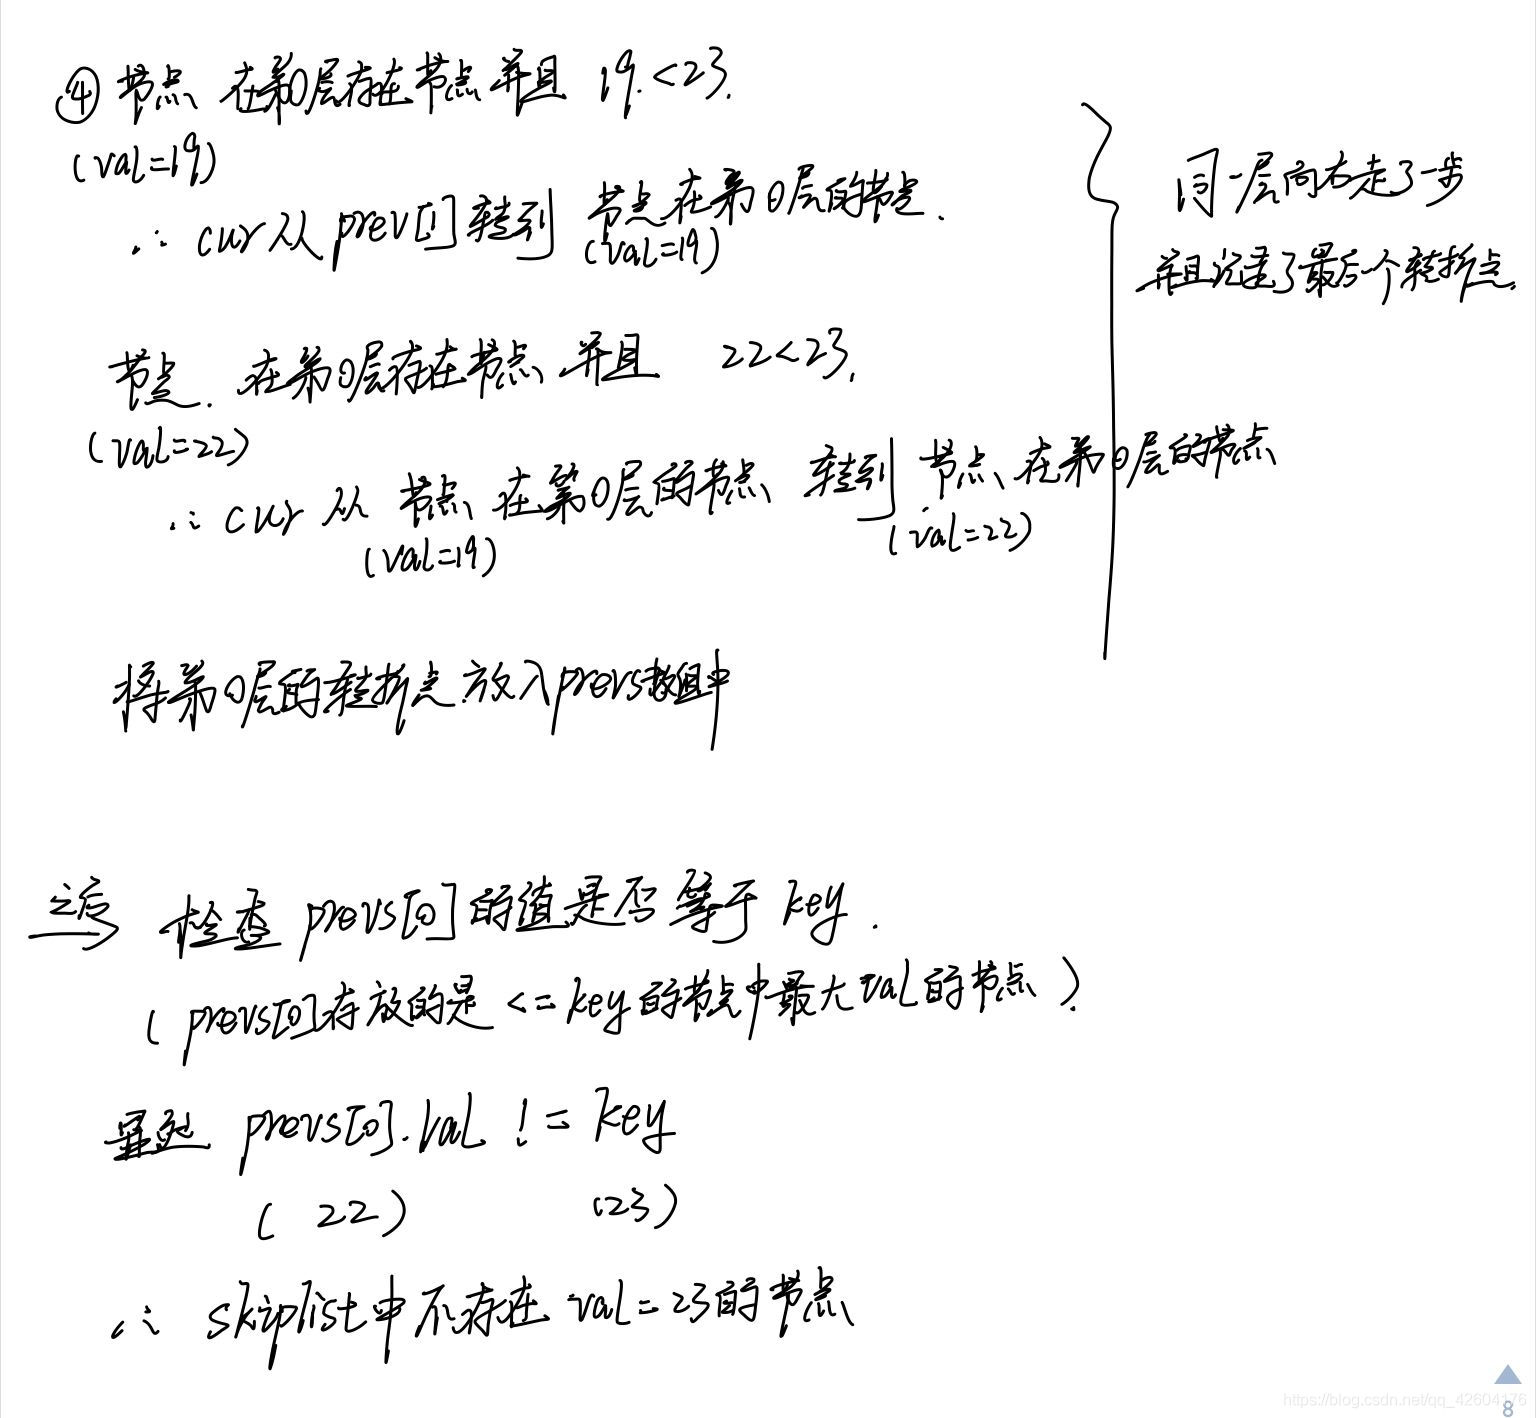 ④ 节点 在第0层存在节点 并且 19<23.
(val=19)
∴ cur从prev[1]转到 节点在第0层的节点.
(val=19)
同一层向右走了一步
并且记录了最后一个转折点.
节点. 在第0层存在节点 并且 22<23.
(val=22)
∴ cur 从 节点 在第0层的节点 转到 节点 在第0层的节点
(val=19) (val=22)
将第0层的转折点放入prevs数组中
之后 检查 prevs[0]的值是否等于key.
(prevs[0]存放的是 <=key的节点中最大val的节点).
prevs[0].val != key
(22) (23)
∴ skiplist中不存在 val=23的节点
https://blog.csdn.net/qq_42604176
8